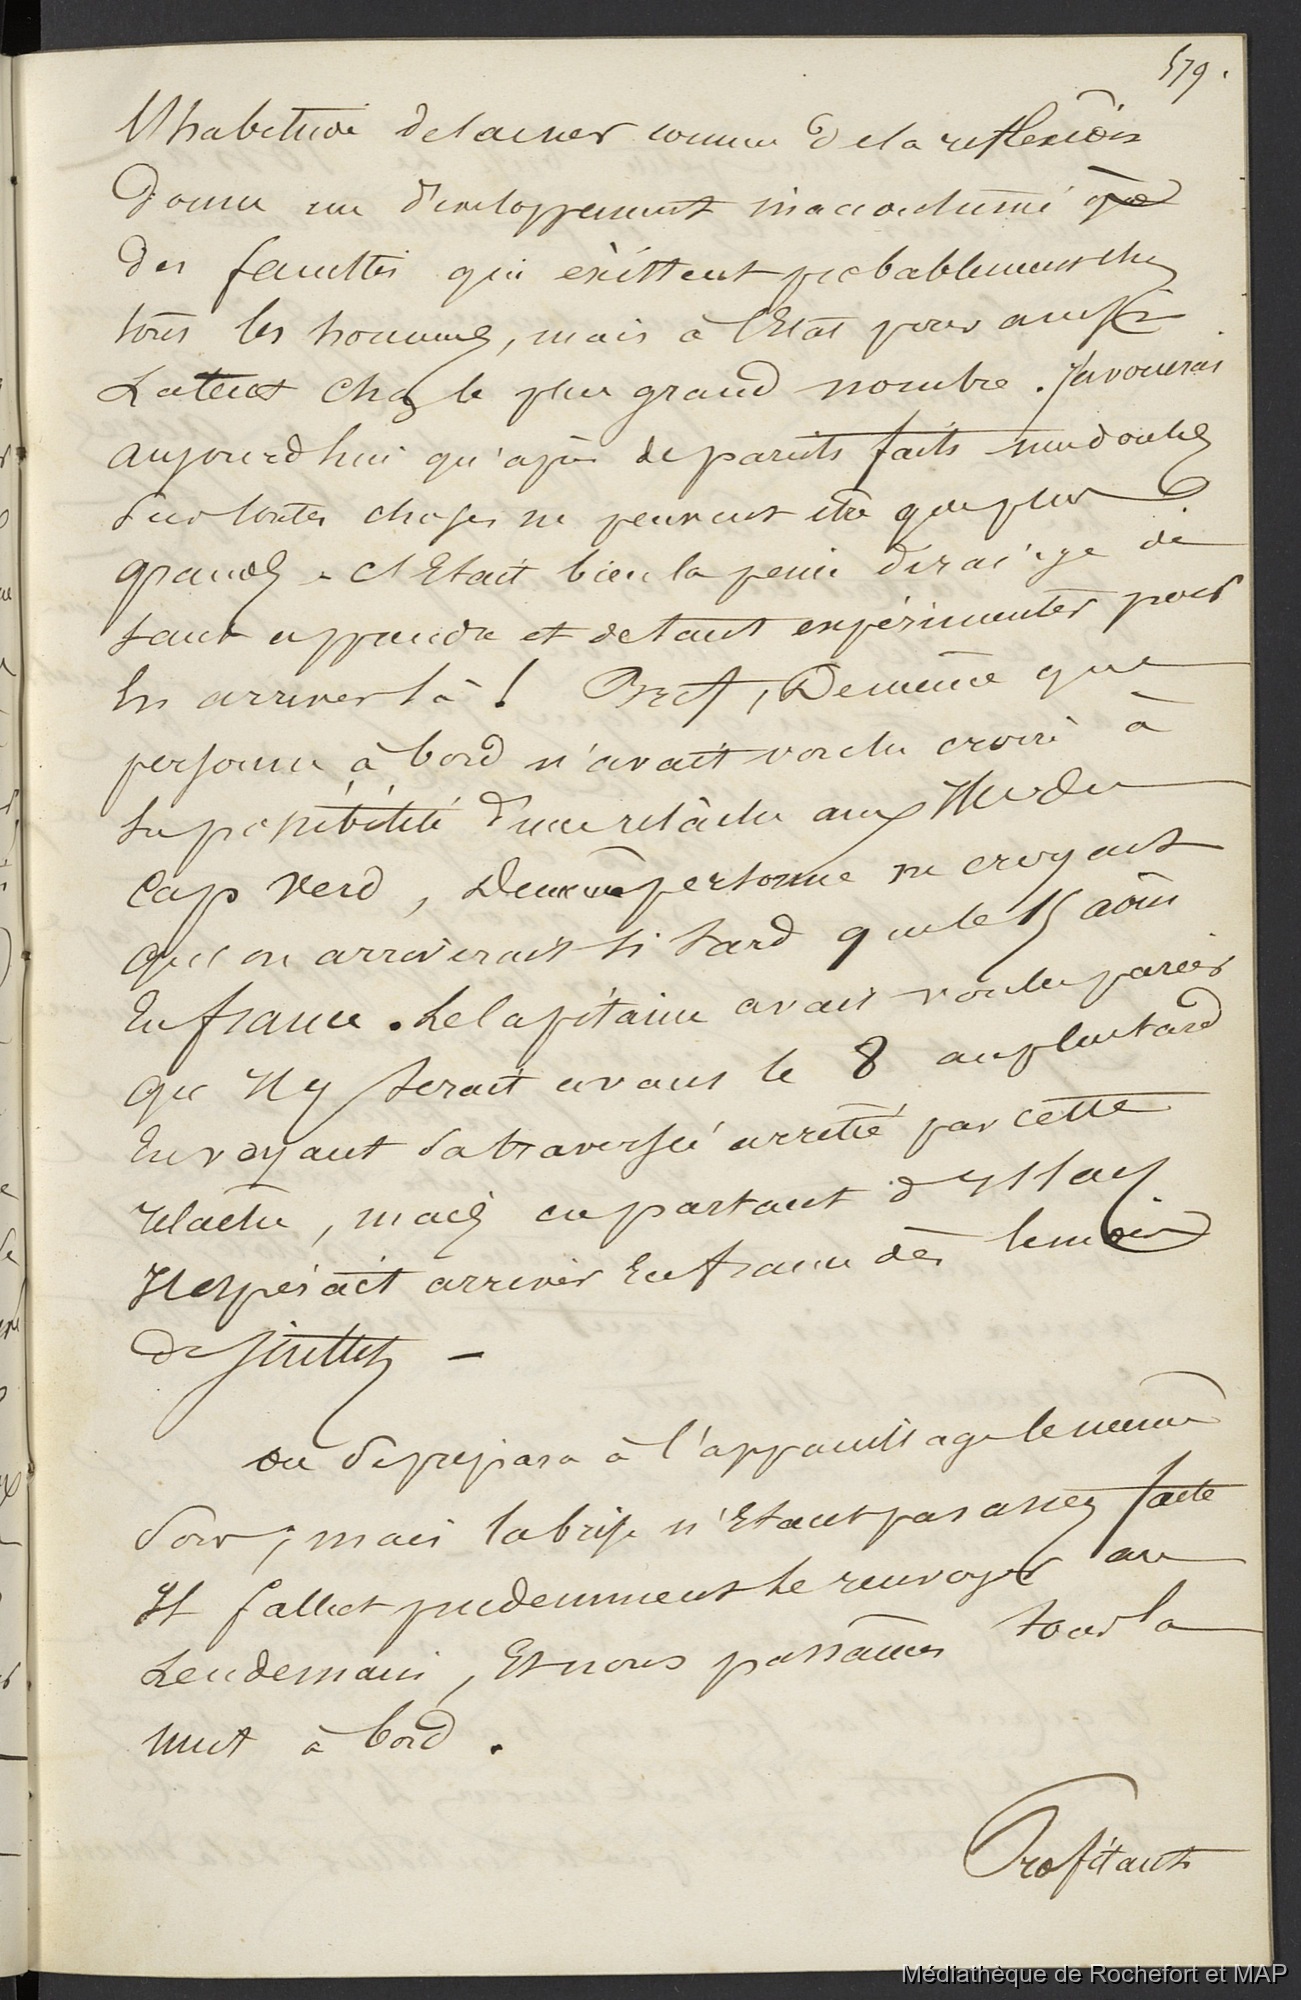 579.
L'habitude de la mer comme de la reflexion
donne un developpement inaccoutumé
des facultés qui existent probablement chez
tous les hommes, mais à l'Etat pour ainsi
Latent chez le plus grand nombre. J'avouerai
aujourd'hui qu'après de pareils faits mes doutes
sur toutes choses ne peuvent être que plus
grands. C'Etait bien la peine dira-t-je de
tant apprendre et de tant expérimenter pour
en arriver là ! Bref, De même que
personne à bord n'avait voulu croire à
la possibilité d'une relâche aux Iles du
Cap Verd, De même personne ne croyait
que on arriverait si tard que le 15 août
En france. Le Capitaine avait voulu parier
qu'Il y serait avant le 8 au plus tard
En voyant sa traversée arrêtée par cette
relâche, mais en partant d'Islay
Il espérait arriver En france dès le mois
de Juillet —
on se prépara à l'appareillage le même
soir, mais la brise n'Etant pas assez forte
Il fallut prudemment le renvoyer au
Lendemain, Et nous passâmes tous la
nuit à bord.
Profitant
Médiathèque de Rochefort et MAP